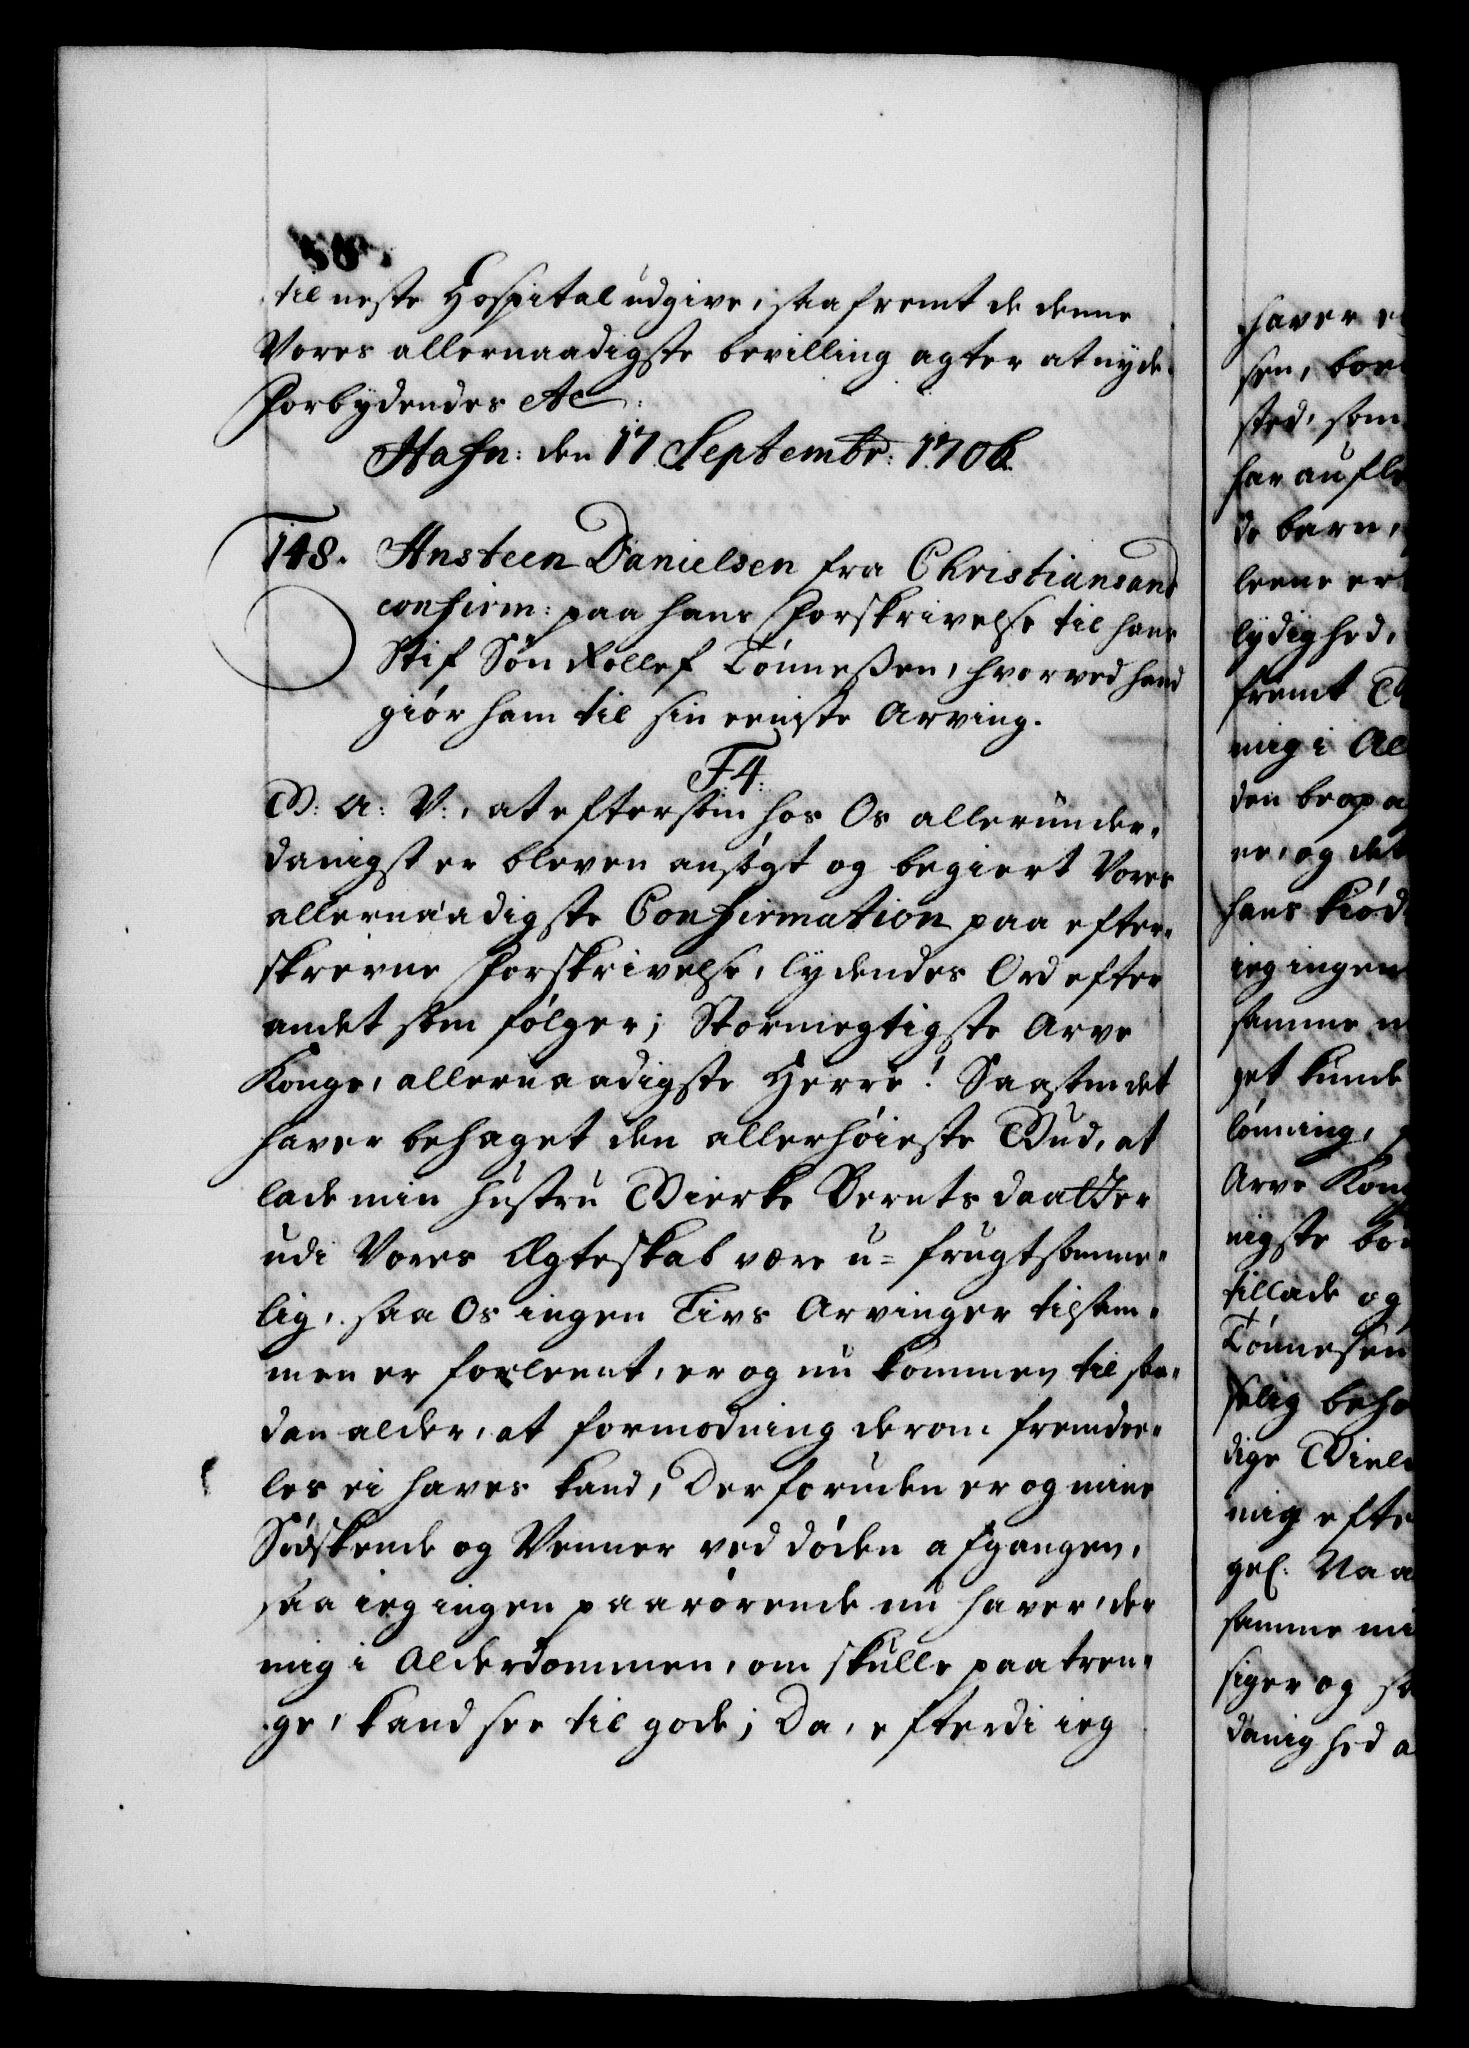 til neste Hospital udgive, saafremt de denne
Vores allernaadigste bevilling agter at nyde.
Forbydendes etc:
Hafn: den 17. Septembr: 1706.
148. Ansteen Danielsen fra Christiansand
confirm: paa hans Forskrivelse til hans
Stif Søn Rollef Tønneßen, hvorved hand
giør ham til sin eeniste Arving.
F4:
W: A: V:, at eftersom hos Os allerunder-
danigst er bleven ansøgt og begiert Vores
allernaadigste Confirmation paa efter-
skrevne Forskrivelse, lydendes Ord efter
andet som følger; Stormegtigste Arve
Konge, allernaadigste Herre! Saasom det
haver behaget den allerhøieste Gud, at
lade min hustru Bierke Berntsdaatter
udi Vores Ægteskab være u-frugtsomme-
lig, saa Os ingen Livs Arvinger tilsam-
men er forleent, er og nu kommen til saa-
dan alder, at formodning derom fremdee-
les ei haves kand, Derforuden er og mine
Sødskende og Venner ved døden afgangen,
saa ieg ingen paarørende nu haver, der
mig i Alderdommen, om skulle paatren-
ge, kand see til gode; Da, efterdi ieg
haver
sen, bor
sted, som
har
de barn,
leene er
lydighed,
fremt
mig i Al
den
ne, og det
hans kiød
ieg ingen
samme
get kunde
lønning,
Arve Kong
nigste
tillade og
Tønnesen
selig beho
dige
mig efte
gel: Naa
samme mi
siger og
danighed a